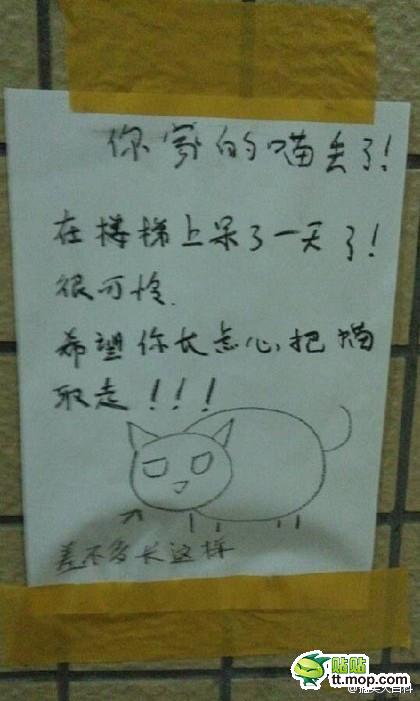 你家的喵丢了!
在楼梯上呆了一天了!
很可怜.
希望你长点心,把喵
取走!!!
差不多长这样
贴贴
tt.mop.com
@搞笑大百科